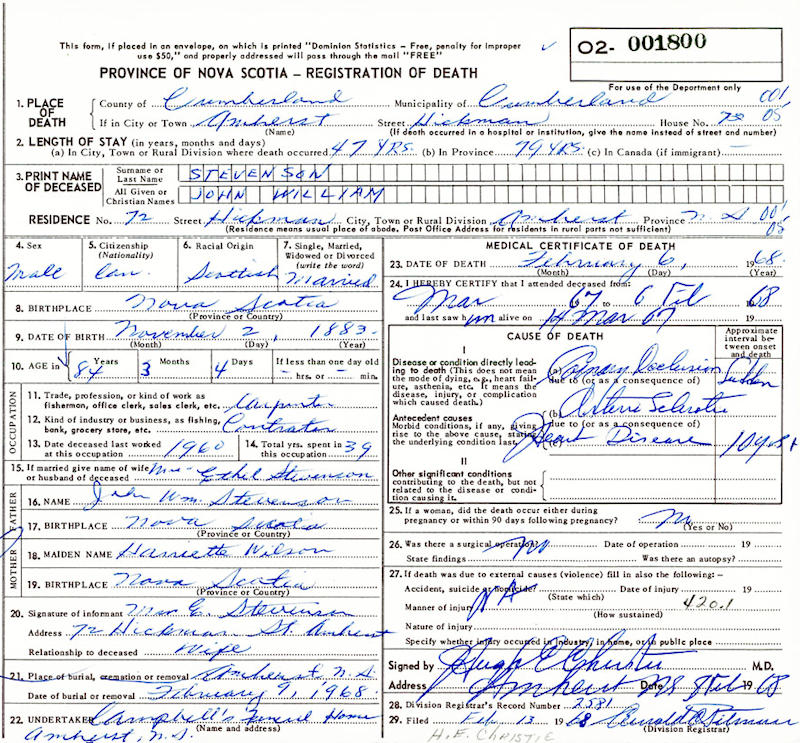 This form, if placed in an envelope, on which is printed "Dominion Statistics – Free, penalty for improper
use $50," and properly addressed will pass through the mail "FREE"
02- 001800
PROVINCE OF NOVA SCOTIA – REGISTRATION OF DEATH
For use of the Department only
1. PLACE OF DEATH
County of Cumberland Municipality of Cumberland 001
If in City or Town Amherst Street Hickman House No. 72 05
(Name) (If death occurred in a hospital or institution, give the name instead of street and number)
2. LENGTH OF STAY (in years, months and days)
(a) In City, Town or Rural Division where death occurred 47 YRS. (b) In Province 79 YRS. (c) In Canada (if immigrant) —
3. PRINT NAME OF DECEASED
Surname or Last Name STEVENSON
All Given or Christian Names JOHN WILLIAM
RESIDENCE No. 72 Street Hickman City, Town or Rural Division Amherst Province N S 001
(Residence means usual place of abode. Post Office Address for residents in rural parts not sufficient) 05
4. Sex
Male
5. Citizenship (Nationality)
Can.
6. Racial Origin
Scottish
7. Single, Married, Widowed or Divorced (write the word)
Married
8. BIRTHPLACE Nova Scotia
(Province or Country)
9. DATE OF BIRTH November 2, 1883.
(Month) (Day) (Year)
10. AGE in 84 Years 3 Months 4 Days If less than one day old
– hrs. or – min.
OCCUPATION
11. Trade, profession, or kind of work as
fishermen, office clerk, sales clerk, etc.
12. Kind of industry or business, as fishing,
bank, grocery store, etc. Contractor
13. Date deceased last worked
at this occupation 1960
14. Total yrs. spent in
this occupation 39
15. If married give name of wife
or husband of deceased Mrs Ethel Stevenson
FATHER
16. NAME John Wm. Stevenson
17. BIRTHPLACE Nova Scotia
(Province or Country)
MOTHER
18. MAIDEN NAME Harriette Wilson
19. BIRTHPLACE Nova Scotia
(Province or Country)
20. Signature of informant Mrs E. Stevenson
Address 72 Hickman St. Amherst
Relationship to deceased Wife
21. Place of burial, cremation or removal Amherst N.S.
Date of burial or removal February 9, 1968.
22. UNDERTAKER Campbell's Funeral Home
Amherst, N.S. (Name and address)
MEDICAL CERTIFICATE OF DEATH
23. DATE OF DEATH February 6, 1968.
(Month) (Day) (Year)
24. I HEREBY CERTIFY that I attended deceased from:
Mar 1967 to 6 Feb 1968
and last saw him alive on 14 Mar 67 19
CAUSE OF DEATH
Approximate interval between onset and death
I
Disease or condition directly leading to death (This does not mean
the mode of dying, e.g., heart failure, asthenia, etc. It means the
disease, injury, or complication which caused death.)
(a) Coronary Occlusion Sudden
due to (or as a consequence of)
Antecedent causes
Morbid conditions, if any, giving rise to the above cause, stating
the underlying condition last.
(b) Arterio Sclerotic
due to (or as a consequence of)
Heart Disease 10 yrs +
II
Other significant conditions
contributing to the death, but not related to the disease or condition causing it.
25. If a woman, did the death occur either during
pregnancy or within 90 days following pregnancy?
(Yes or No)
26. Was there a surgical operation? No Date of operation 19
State findings Was there an autopsy?
27. If death was due to external causes (violence) fill in also the following:–
Accident, suicide or homicide? Date of injury 19
(State which)
Manner of injury NA 420.1
(How sustained)
Nature of injury
Specify whether injury occurred in industry, in home, or in public place
Signed by Hugh E Christie M.D.
Address Amherst NS Date 8 Feb 1968
28. Division Registrar's Record Number 2581
29. Filed Feb 13 1968
(Division Registrar)
H. E. CHRISTIE